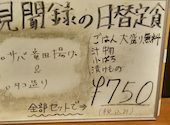 見聞録の日替定食
サバ竜田揚げ
&
タコ造り
ごはん大盛り無料
汁物
小ばち
漬けもの
全部セットで
¥750
(税込み)